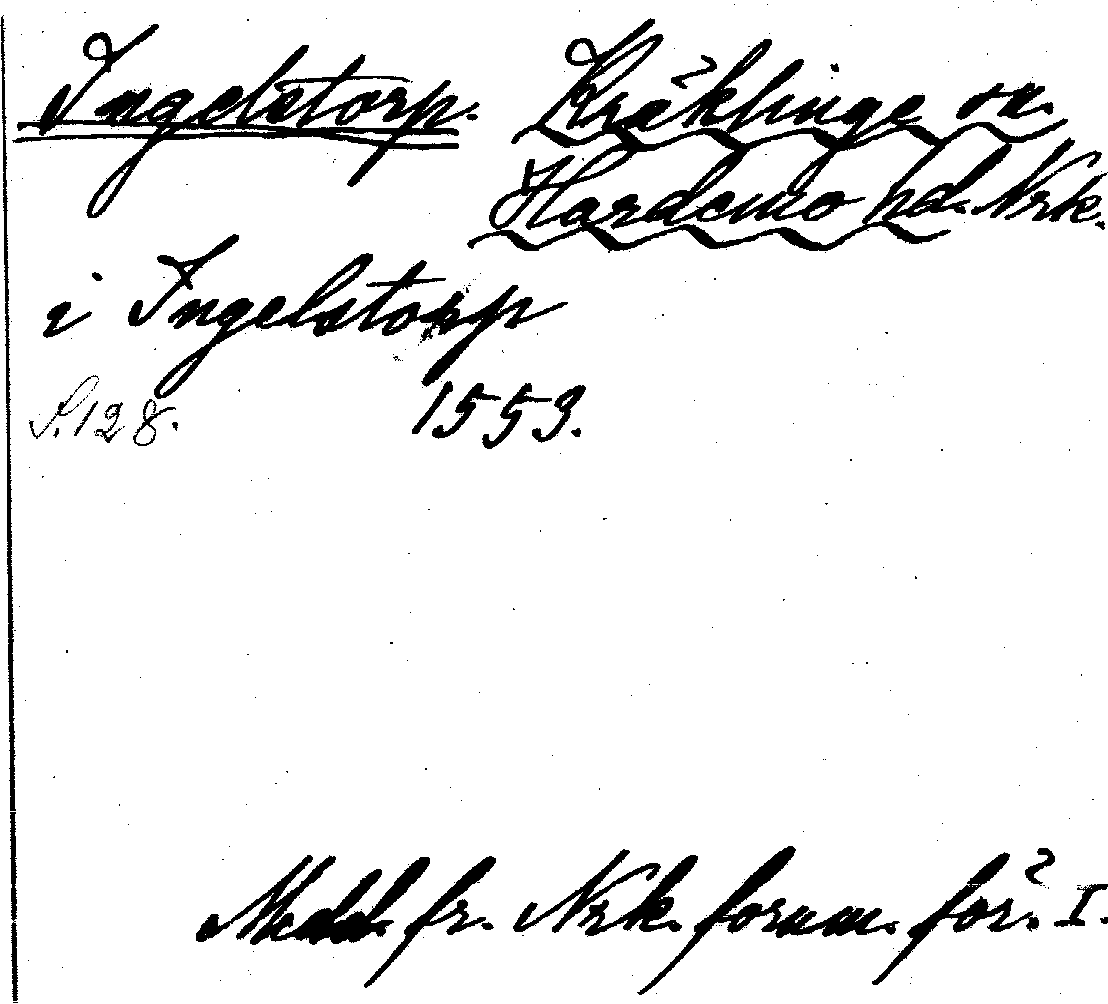 Ingelstorp. Kräklinge sn.
Hardemo hd. Nrk.
i Ingelstorp
S. 128. 1553.
Medd. fr. Nrk. fornm. för. I.